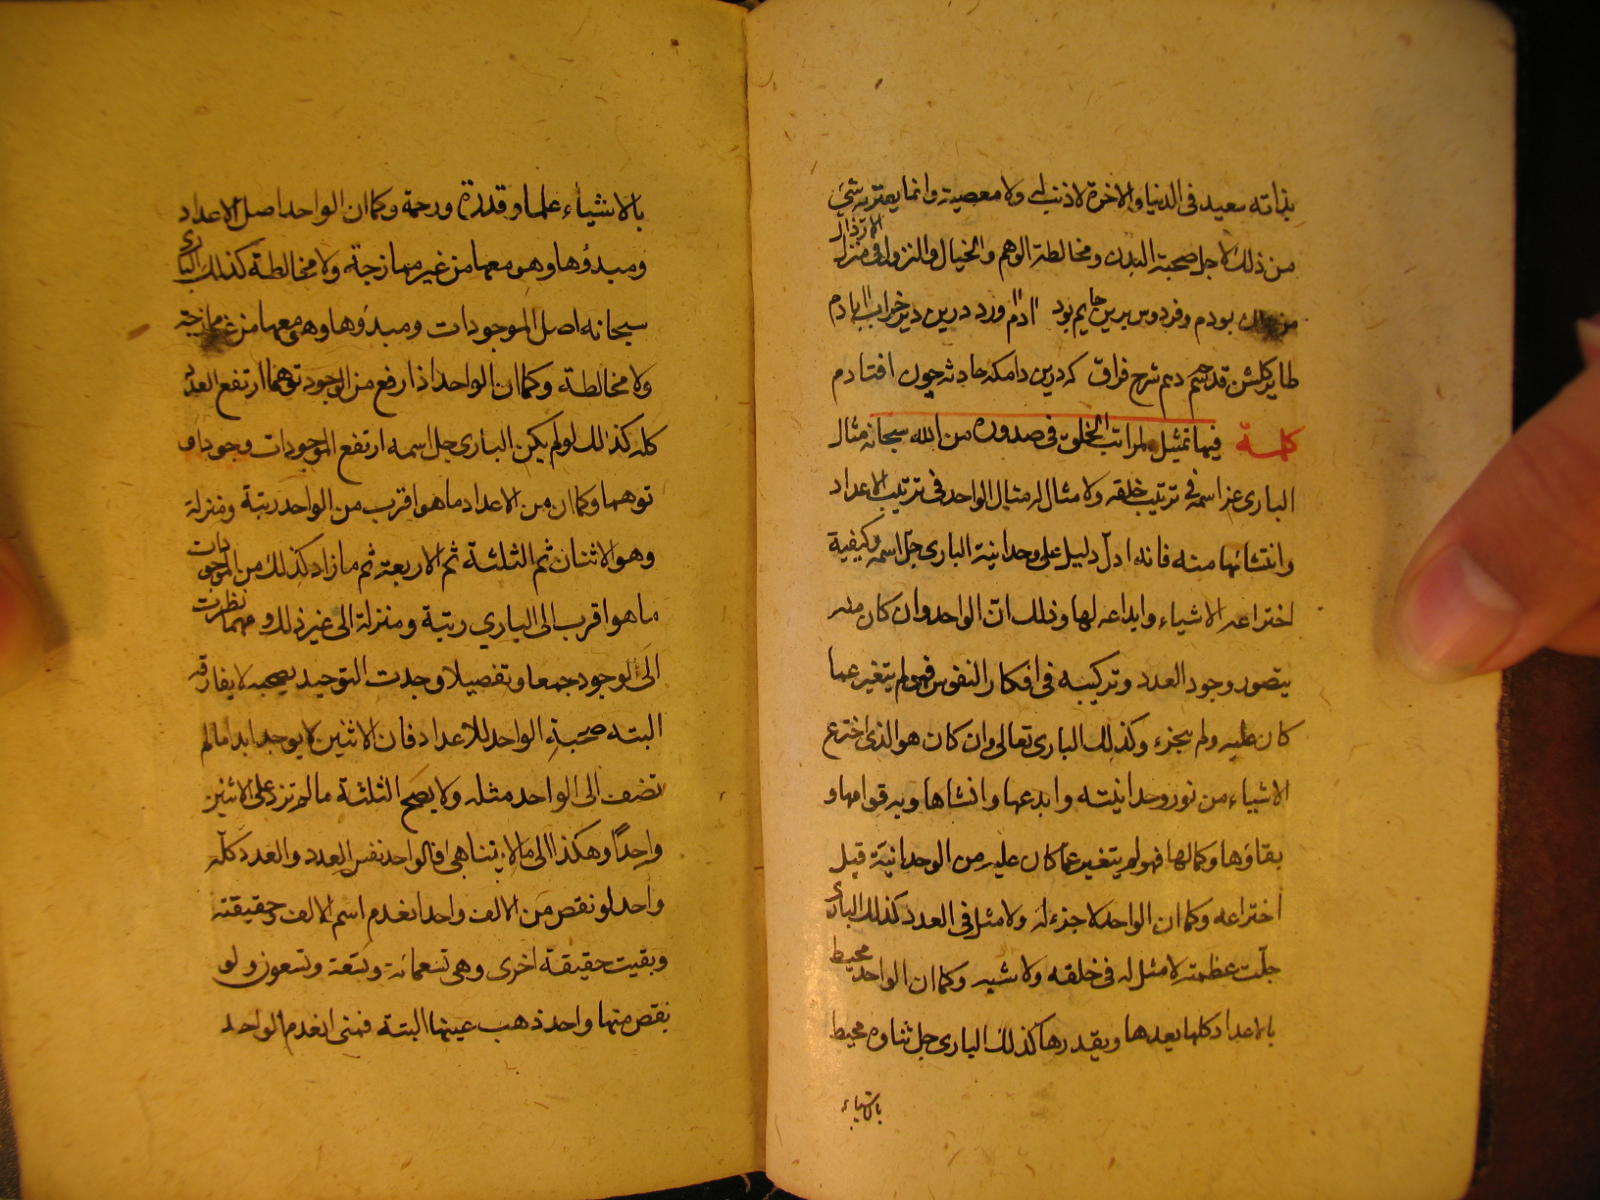 بذاته سعيد في الدنيا والاخرة لا ذنب له ولا معصية وانما يعتريه شيء
من ذلك لاجل صحبة البدن ومخالطة الوهم والخيال والنزول في منزل الارذال
من بودم وفردوس برين جايم بود آدم آورد درين دير خراب آبادم
طاير كلشن قدسم چه دهم شرح فراق كه درين دامكه حادثه چون افتادم
كلمة فيها تمثيل لمراتب الخلق في صدوره من الله سبحانه مثال
الباري عز اسمه في ترتيب خلقه ولا مثال له مثال الواحد في ترتيب الاعداد
وانتشائها منه فانه ادل دليل على وحدانية الباري جل اسمه وكيفية
اختراعه الاشياء وابداعه لها وذلك ان الواحد وان كان منه
يتصور وجود العدد وتركيبه في افكار النفوس فهو لم يتغير عما
كان عليه ولم يتجزء وكذلك الباري تعالى وان كان هو الذي اخترع
الاشياء من نور وحدانيته وابدعها وانشاها وبه قوامها و
بقاؤها وكمالها فهو لم يتغير عما كان عليه من الوحدانية قبل
اختراعه وكما ان الواحد لا جزء له ولا مثل في العدد كذلك الباري
جلت عظمته لا مثل له في خلقه ولا شبيه وكما ان الواحد محيط
بالاعداد كلها يعدها ويقدرها كذلك الباري جل ثناؤه محيط
بالاشياء
بالاشياء علما وقدرة ورحمة وكما ان الواحد اصل الاعداد
ومبدؤها وهو معها من غير ممازجة ولا مخالطة كذلك الباري
سبحانه اصل الموجودات ومبدؤها وهو معها من غير ممازجة
ولا مخالطة وكما ان الواحد اذا رفع من الوجود توهما ارتفع العدد
كله كذلك لو لم يكن الباري جل اسمه ارتفع الموجودات وجودا و
توهما وكما ان من الاعداد ما هو اقرب من الواحد رتبة ومنزلة
وهو الاثنان ثم الثلثة ثم الاربعة ثم ما زاد كذلك من الموجودات
ما هو اقرب الى الباري رتبة ومنزلة الى غير ذلك ومهما نظرت
الى الوجود جمعا وتفصيلا وجدت التوحيد يصحبه لا يفارقه
البته صحبة الواحد للاعداد فان الاثنين لا يوجد ابدا مالم
تضف الى الواحد مثله ولا يصح الثلثة مالم تزد على الاثنين
واحدا وهكذا الى مالا يتناهى فالواحد نفس العدد والعدد كله
واحد لو نقص من الالف واحد انعدم اسم الالف وحقيقته
وبقيت حقيقة اخرى وهي تسعمائة وتسعة وتسعون ولو
نقص منها واحد ذهب عينها البتة فمتى انعدم الواحد